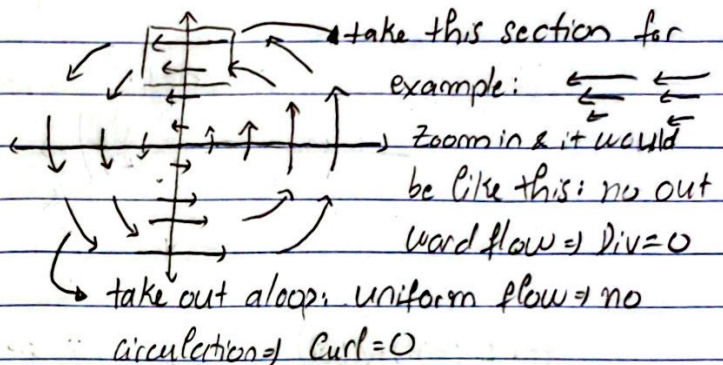 take this section for
example:
Zoom in & it would
be like this: no out
ward flow => Div=0
take out a loop: uniform flow => no
circulation => Curl=0